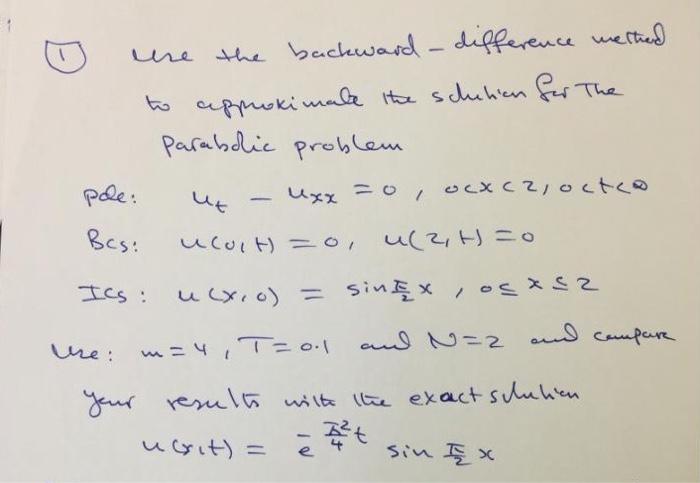 ① Use the backward-difference method
to approximate the solution for The
parabolic problem
pde: u_t - u_xx = 0, 0<x<2, 0<t<∞
Bcs: u(0,t) = 0, u(2,t) = 0
ICs: u(x,0) = sin π/2 x, 0≤x≤2
Use: m=4, T=0.1 and N=2 and compare
your results with the exact solution
u(x,t) = e^(-π²/4 t) sin π/2 x